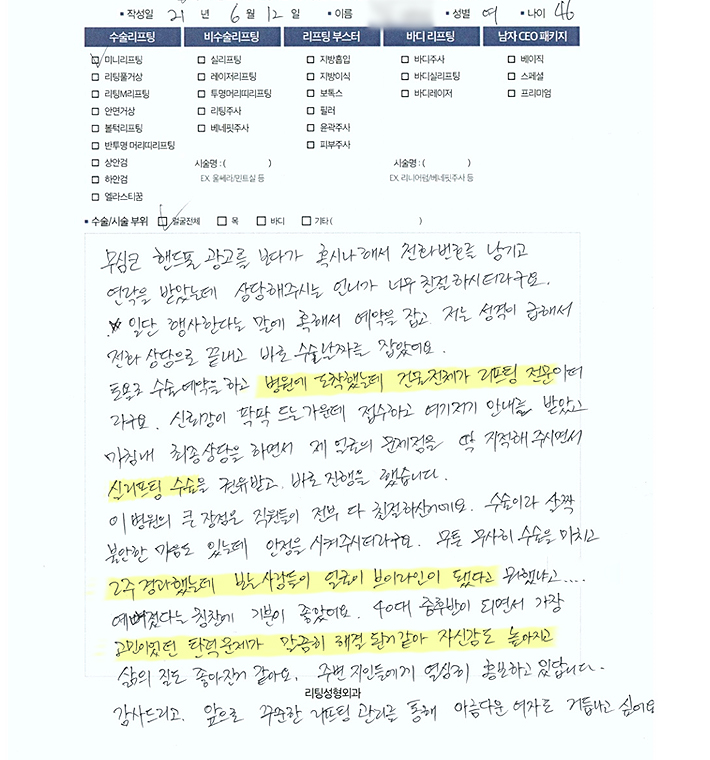 • 작성일 21 년 6 월 12 일 • 이름 • 성별 여 • 나이 46
수술리프팅 비수술리프팅 리프팅 부스터 바디 리프팅 남자 CEO 패키지
미니리프팅 실리프팅 지방흡입 바디주사 베이직
리팅풀거상 레이저리프팅 지방이식 바디실리프팅 스페셜
리팅M리프팅 투명머리띠리프팅 보톡스 바디레이저 프리미엄
안면거상 리팅주사 필러
볼턱리프팅 베네핏주사 윤곽주사
반투명 머리띠리프팅 피부주사
상안검 시술명 : ( ) 시술명 : ( )
하안검 EX. 울쎄라/민트실 등 EX. 리니어펌/베네핏주사 등
엘라스티꿈
• 수술/시술 부위 얼굴전체 목 바디 기타 ( )
무심코 핸드폰 광고를 보다가 혹시나해서 전화번호를 남기고
연락을 받았는데 상담해주시는 언니가 너무 친절하시더라구요.
일단 행사한다는 말에 혹해서 예약을 잡고 저는 성격이 급해서
전화 상담으로 끝내고 바로 수술날짜를 잡았어요.
토요일 수술예약을 하고 병원에 도착했는데 건물전체가 리프팅 전문이더
라구요. 신뢰감이 팍팍 드는가운데 접수하고 여기저기 안내를 받았고
마침내 최종상담을 하면서 제 얼굴의 문제점을 딱 지적해 주시면서
실리프팅 수술을 권유받고 바로 진행을 했습니다.
이 병원의 큰 장점은 직원들이 전부 다 친절하신거예요. 수술이라 살짝
불안한 마음도 있는데 안정을 시켜주시더라구요. 무튼 무사히 수술을 마치고
2주 경과했는데 보는사람들이 얼굴이 브이라인이 됐다고 뭐했냐고....
예뻐졌다는 칭찬에 기분이 좋았어요. 40대 중후반이 되면서 가장
고민이었던 탄력문제가 말끔히 해결 된거같아 자신감도 높아지고
삶의 질도 좋아진거 같아요. 주변 지인들에게 열심히 홍보하고 있답니다.
리팅성형외과
감사드리고. 앞으로 꾸준한 리프팅 관리를 통해 아름다운 여자로 거듭나고 싶어요